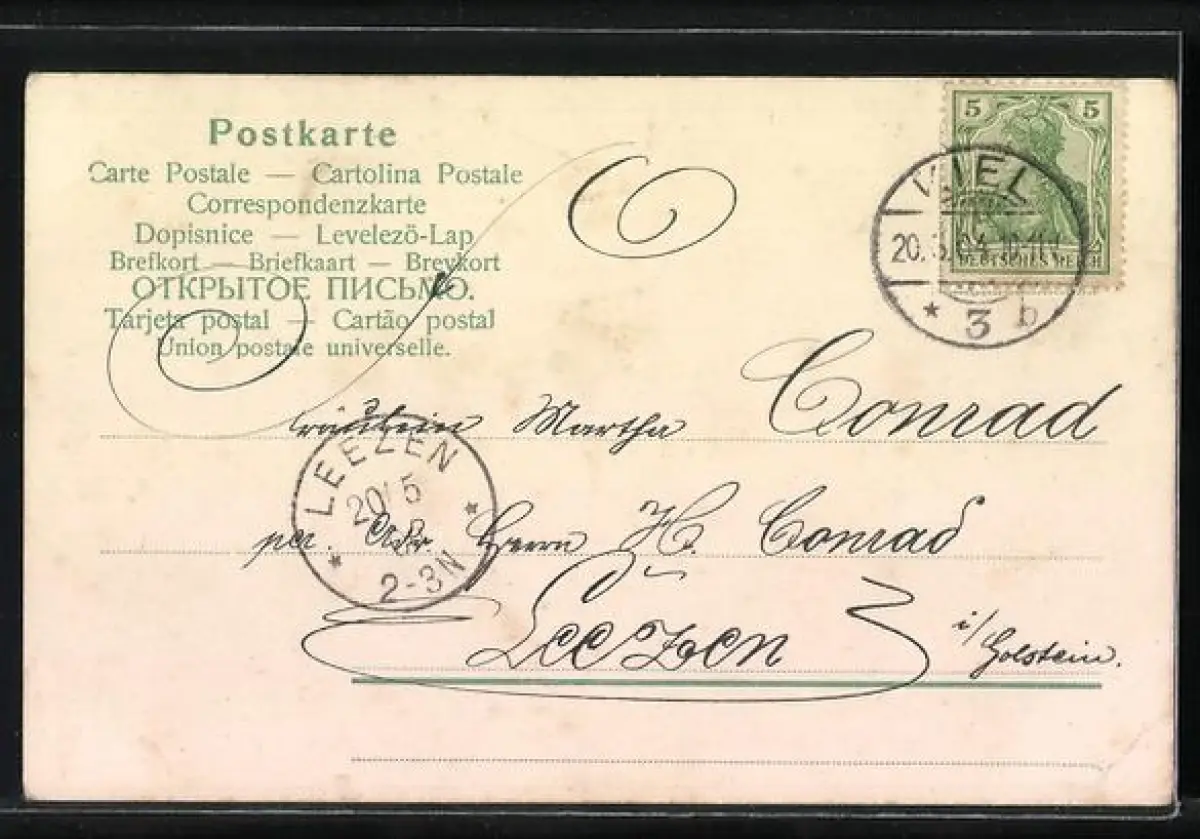 Postkarte
Carte Postale — Cartolina Postale
Correspondenzkarte
Dopisnice — Levelezö-Lap
Brefkort — Briefkaart — Brevkort
ОТКРЫТОЕ ПИСЬМО.
Tarjeta postal — Cartão postal
Union postale universelle.
5 5
DEUTSCHES REICH
KIEL
20. 5. 04
* 3 b
Fräulein Martha Conrad
LEEZEN
20/5
* *
2-3N
per. Adr. Herrn H. Conrad
Leezen i/Holstein.